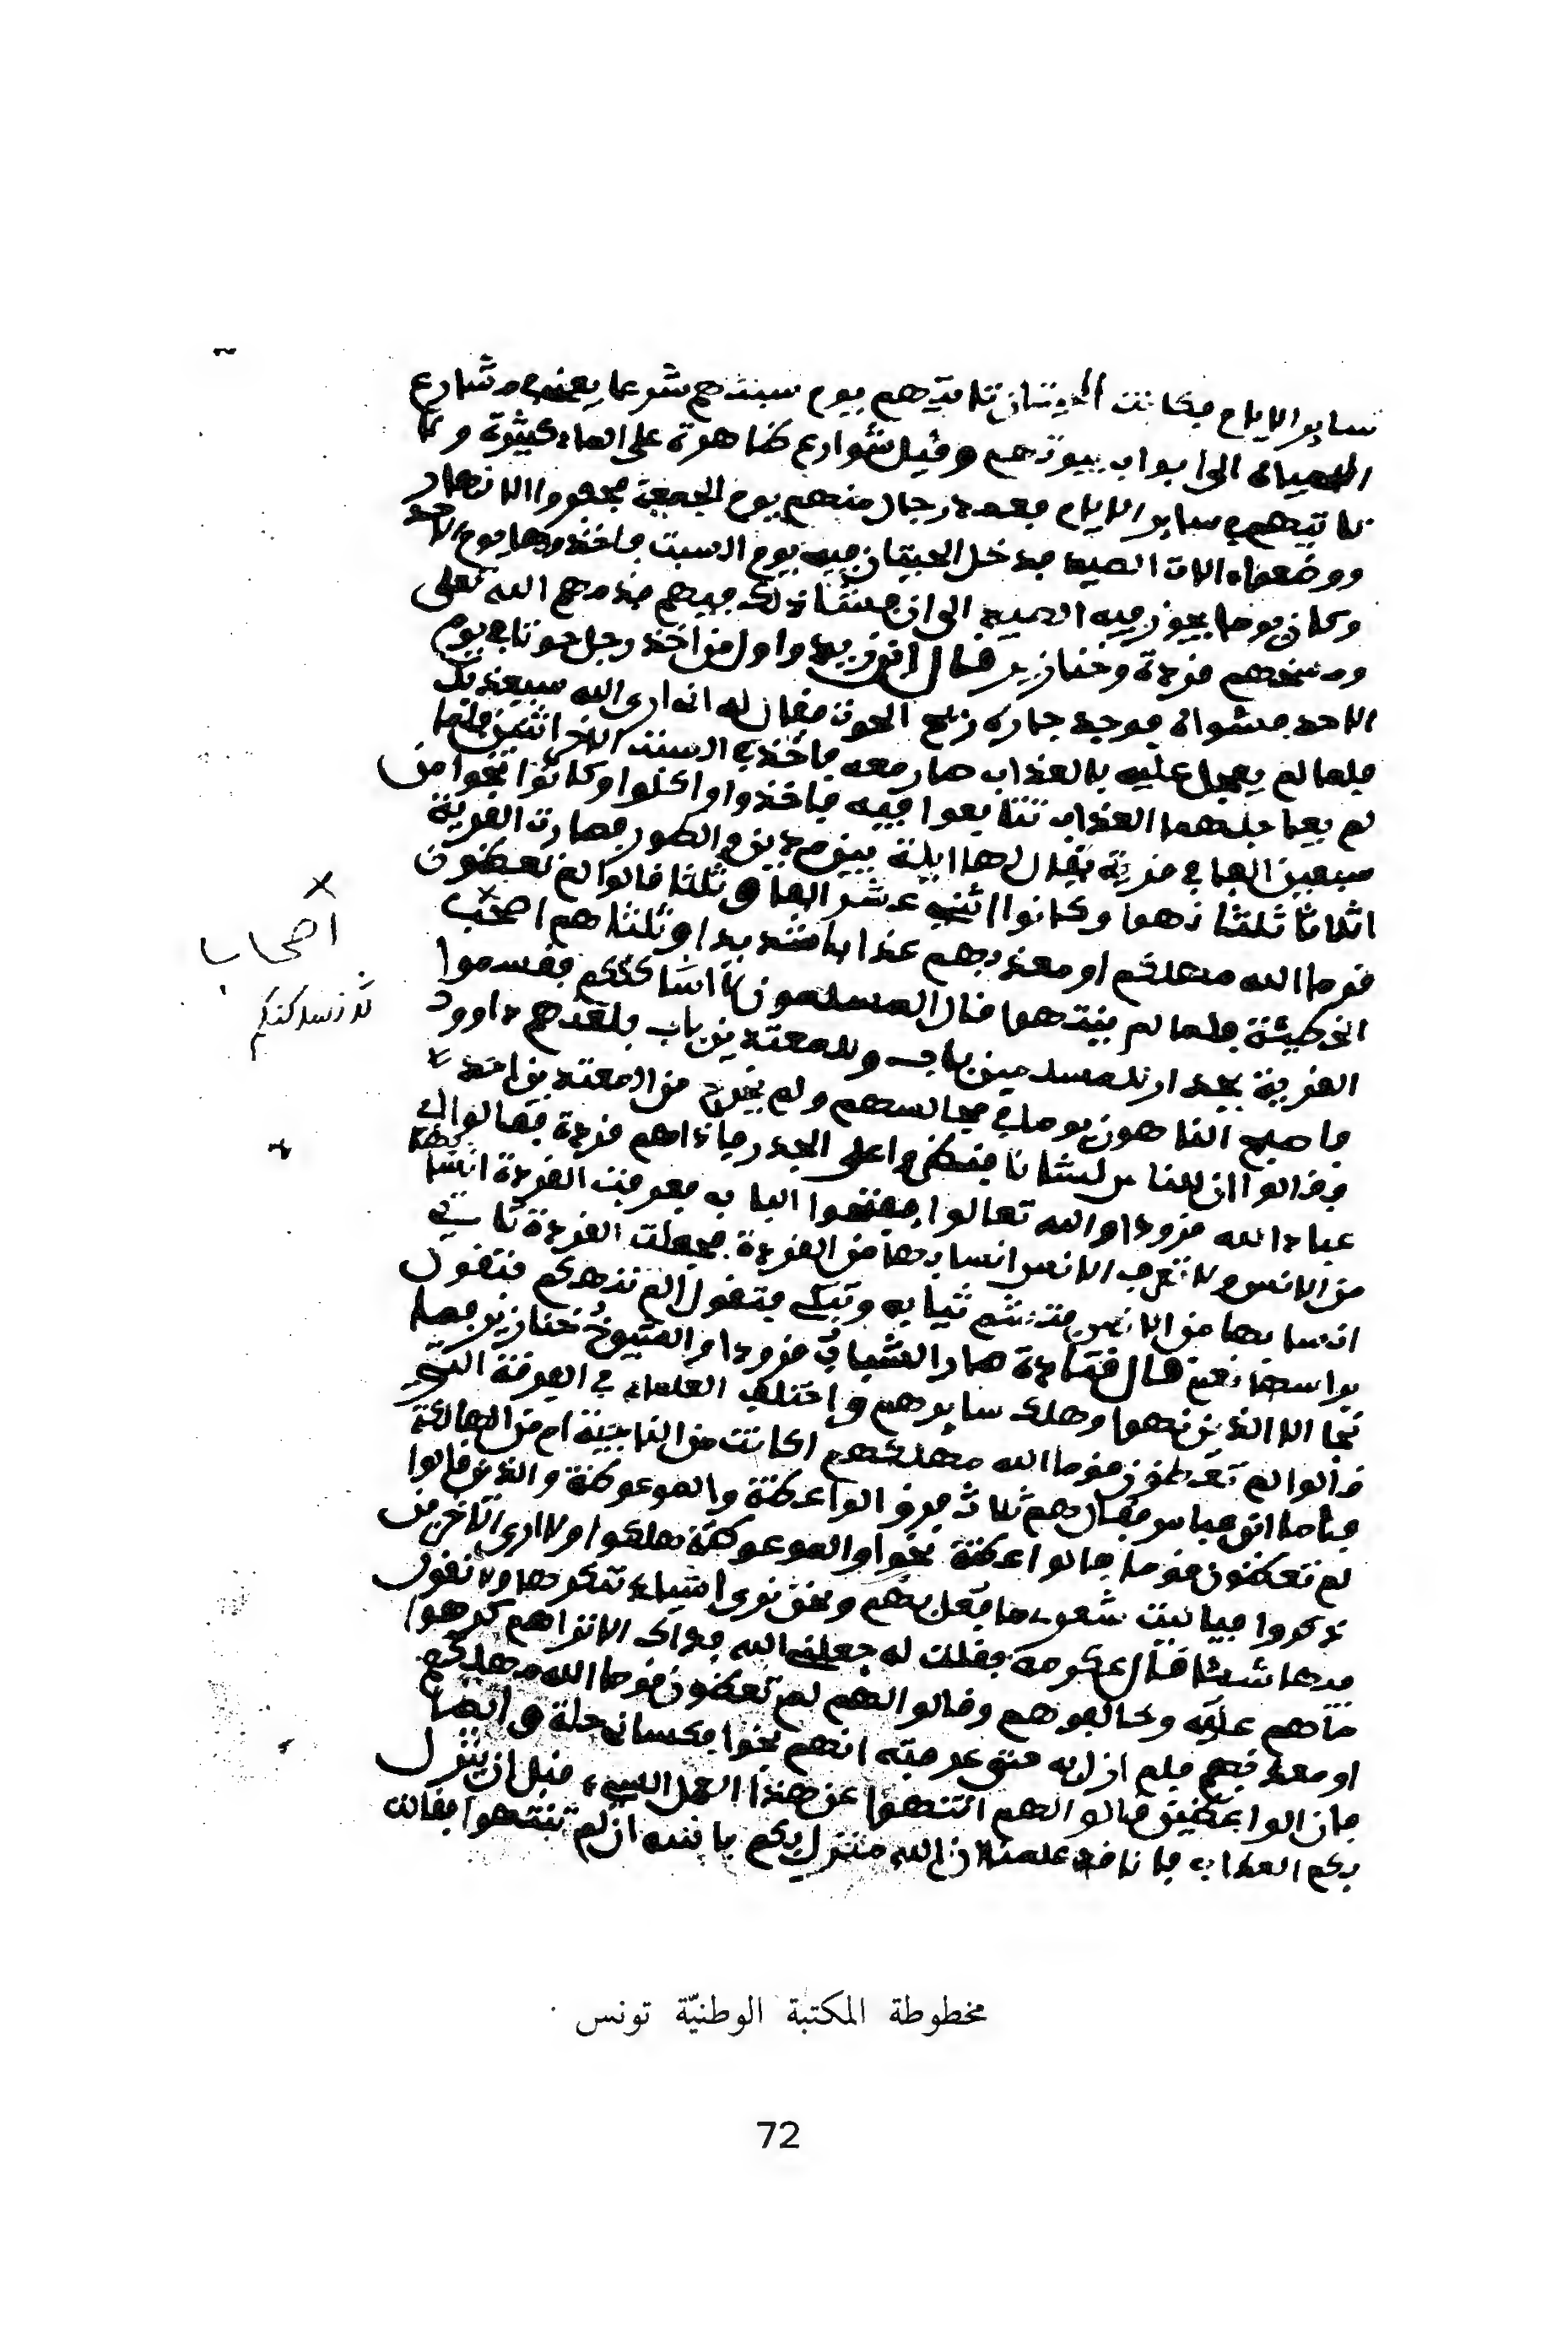 ساير الايام فكانت الحيتان تاتيهم يوم سبتهم شرعا يعني من شارع
المياه الى ابواب بيوتهم وقيل شوارع ظاهرة على الماء كثيرة ولا
تاتيهم في ساير الايام فعمد رجال منهم يوم الجمعة فحفروا الانهار
ووضعوا الات الصيد فدخل الحيتان فيه يوم السبت فاخذوها يوم الاحد
وكان يوما يجوز فيه الصيد الى ان فشا ذلك فيهم فدمرهم الله تعلى
ومسخهم قردة وخنازير قال ابن زيد واول من اخذ رجل حوتا في يوم
الاحد فشواه فوجد جاره ريح الحوت فقال له اني ارى الله سيعذبك
فلما لم يعجل عليه بالعذاب صار معه فاخذ في السبت الاخر اثنين فلما
لم يعاجلهما العذاب تتابعوا فيه فاخذوا واكلوا وكانوا نحوا من
سبعين الفا في قرية يقال لها ايلة بين مدين والطور فصارت القرية
اثلاثا ثلثا نهوا وكانوا اثني عشر الفا وثلثا قالوا لم تعظون
قوما الله مهلكهم او معذبهم عذابا شديدا وثلثا هم اصحب
الخطيئة فلما لم ينتهوا قال المسلمون لا نساكنكم فقسموا
القرية بجدار للمسلمين باب وللمعتدين باب فلعنهم داوود
فاصبح الناهون يوما في مجالسهم ولم يخرج من المعتدين احد
فقالوا ان للناس لشانا فنظروا على الجدر فاذا هم قردة فقالوا
عباد الله قرود والله تعالوا ففتحوا الباب فعرفت القردة انسابها
من الانس ولا تعرف الانس انسابها من القردة فجعلت القردة تاتي
انسابها من الانس فتشم ثيابه وتبكي فتقول الم ننهكم فتقول
براسها نعم قال قتادة صار الشباب قرودا والشيوخ خنازير فما
نجا الا الذين نهوا وهلك سايرهم واختلف العلماء في الفرقة التي
قالوا لم تعظون قوما الله مهلكهم اكانت من الناجية ام من الهالكة
فأما ابن عباس فقال هم ثلاث فرق الواعظة والموعوظة والذين قالوا
لم تعظون قوما فالواعظة نجوا والموعوظة هلكوا ولا ادري الاخرين
ذكروا فيا ليت شعري ما فعل بهم ونحن نرى اشياء ننكرها ولا نقول
فيها شيئا قال عكرمة فقلت له جعلني الله فداك الا تراهم كرهوا
ما هم عليه وخالفوهم وقالوا لهم لم تعظون قوما الله مهلكهم
او معذبهم فلم ازل به حتى عرفته انهم نجوا فكساني حلة وايضا
فان الواعظين قالوا لهم انتهوا عن هذا العمل السيء قبل ان ينزل
بكم العذاب فانا قد علمنا ان الله منزل بكم باسه ان لم تنتهوا فقالت
× اصحاب
مخطوطة المكتبة الوطنيّة تونس
72